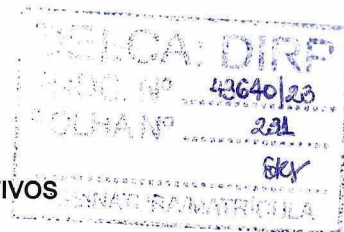 SELCA: DIRP
PROC. Nº 43640/23
FOLHA Nº 291
TIVOS
ASSINATURA/MATRÍCULA